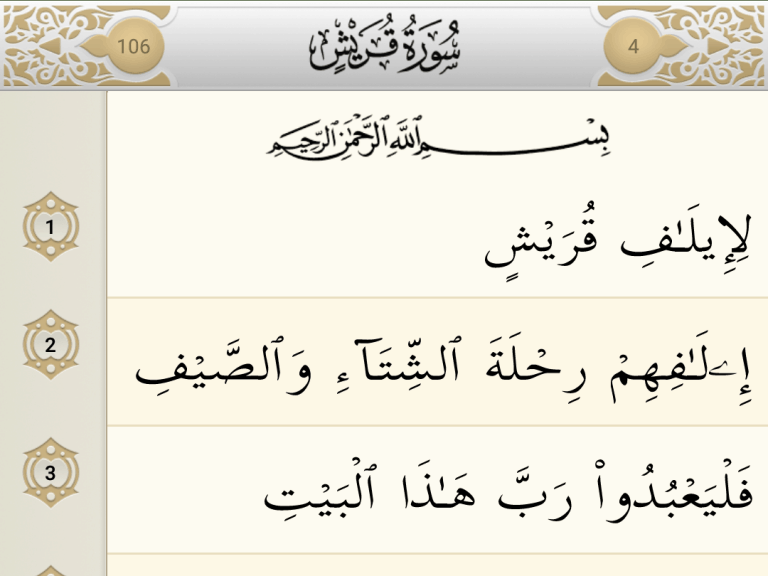 106
سُورَةُ قُرَيْشٍ
4
بِسْمِ ٱللَّهِ ٱلرَّحْمَٰنِ ٱلرَّحِيمِ
1
لِإِيلَـٰفِ قُرَيْشٍ
2
إِۦلَـٰفِهِمْ رِحْلَةَ ٱلشِّتَآءِ وَٱلصَّيْفِ
3
فَلْيَعْبُدُوا۟ رَبَّ هَـٰذَا ٱلْبَيْتِ